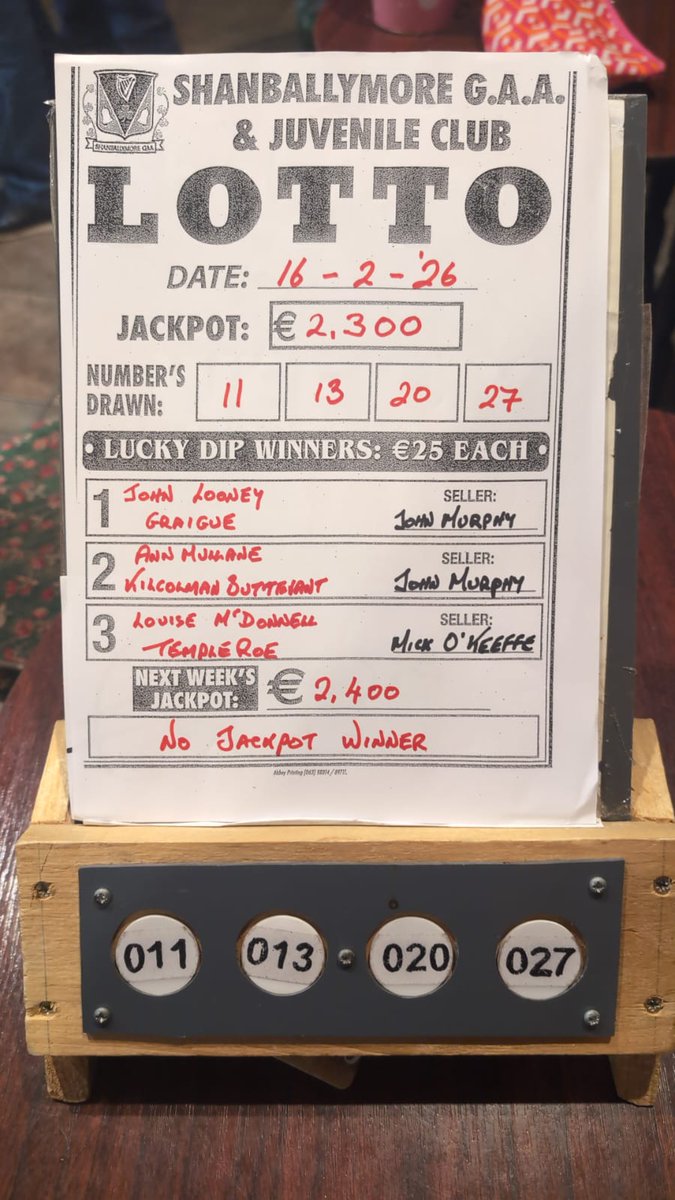 SHANBALLYMORE GAA
SHANBALLYMORE G.A.A.
& JUVENILE CLUB
LOTTO
DATE: 16-2-'26
JACKPOT: € 2,300
NUMBER'S DRAWN: 11 13 20 27
• LUCKY DIP WINNERS: €25 EACH •
1 JOHN LOONEY SELLER:
GRAIGUE JOHN MURPHY
2 ANN MULLANE SELLER:
KILCOLMAN BUTTEVANT JOHN MURPHY
3 LOUISE McDONNELL SELLER:
TEMPLEROE MICK O'KEEFFE
NEXT WEEK'S JACKPOT: € 2,400
NO JACKPOT WINNER
Abbey Printing (063)
011 013 020 027